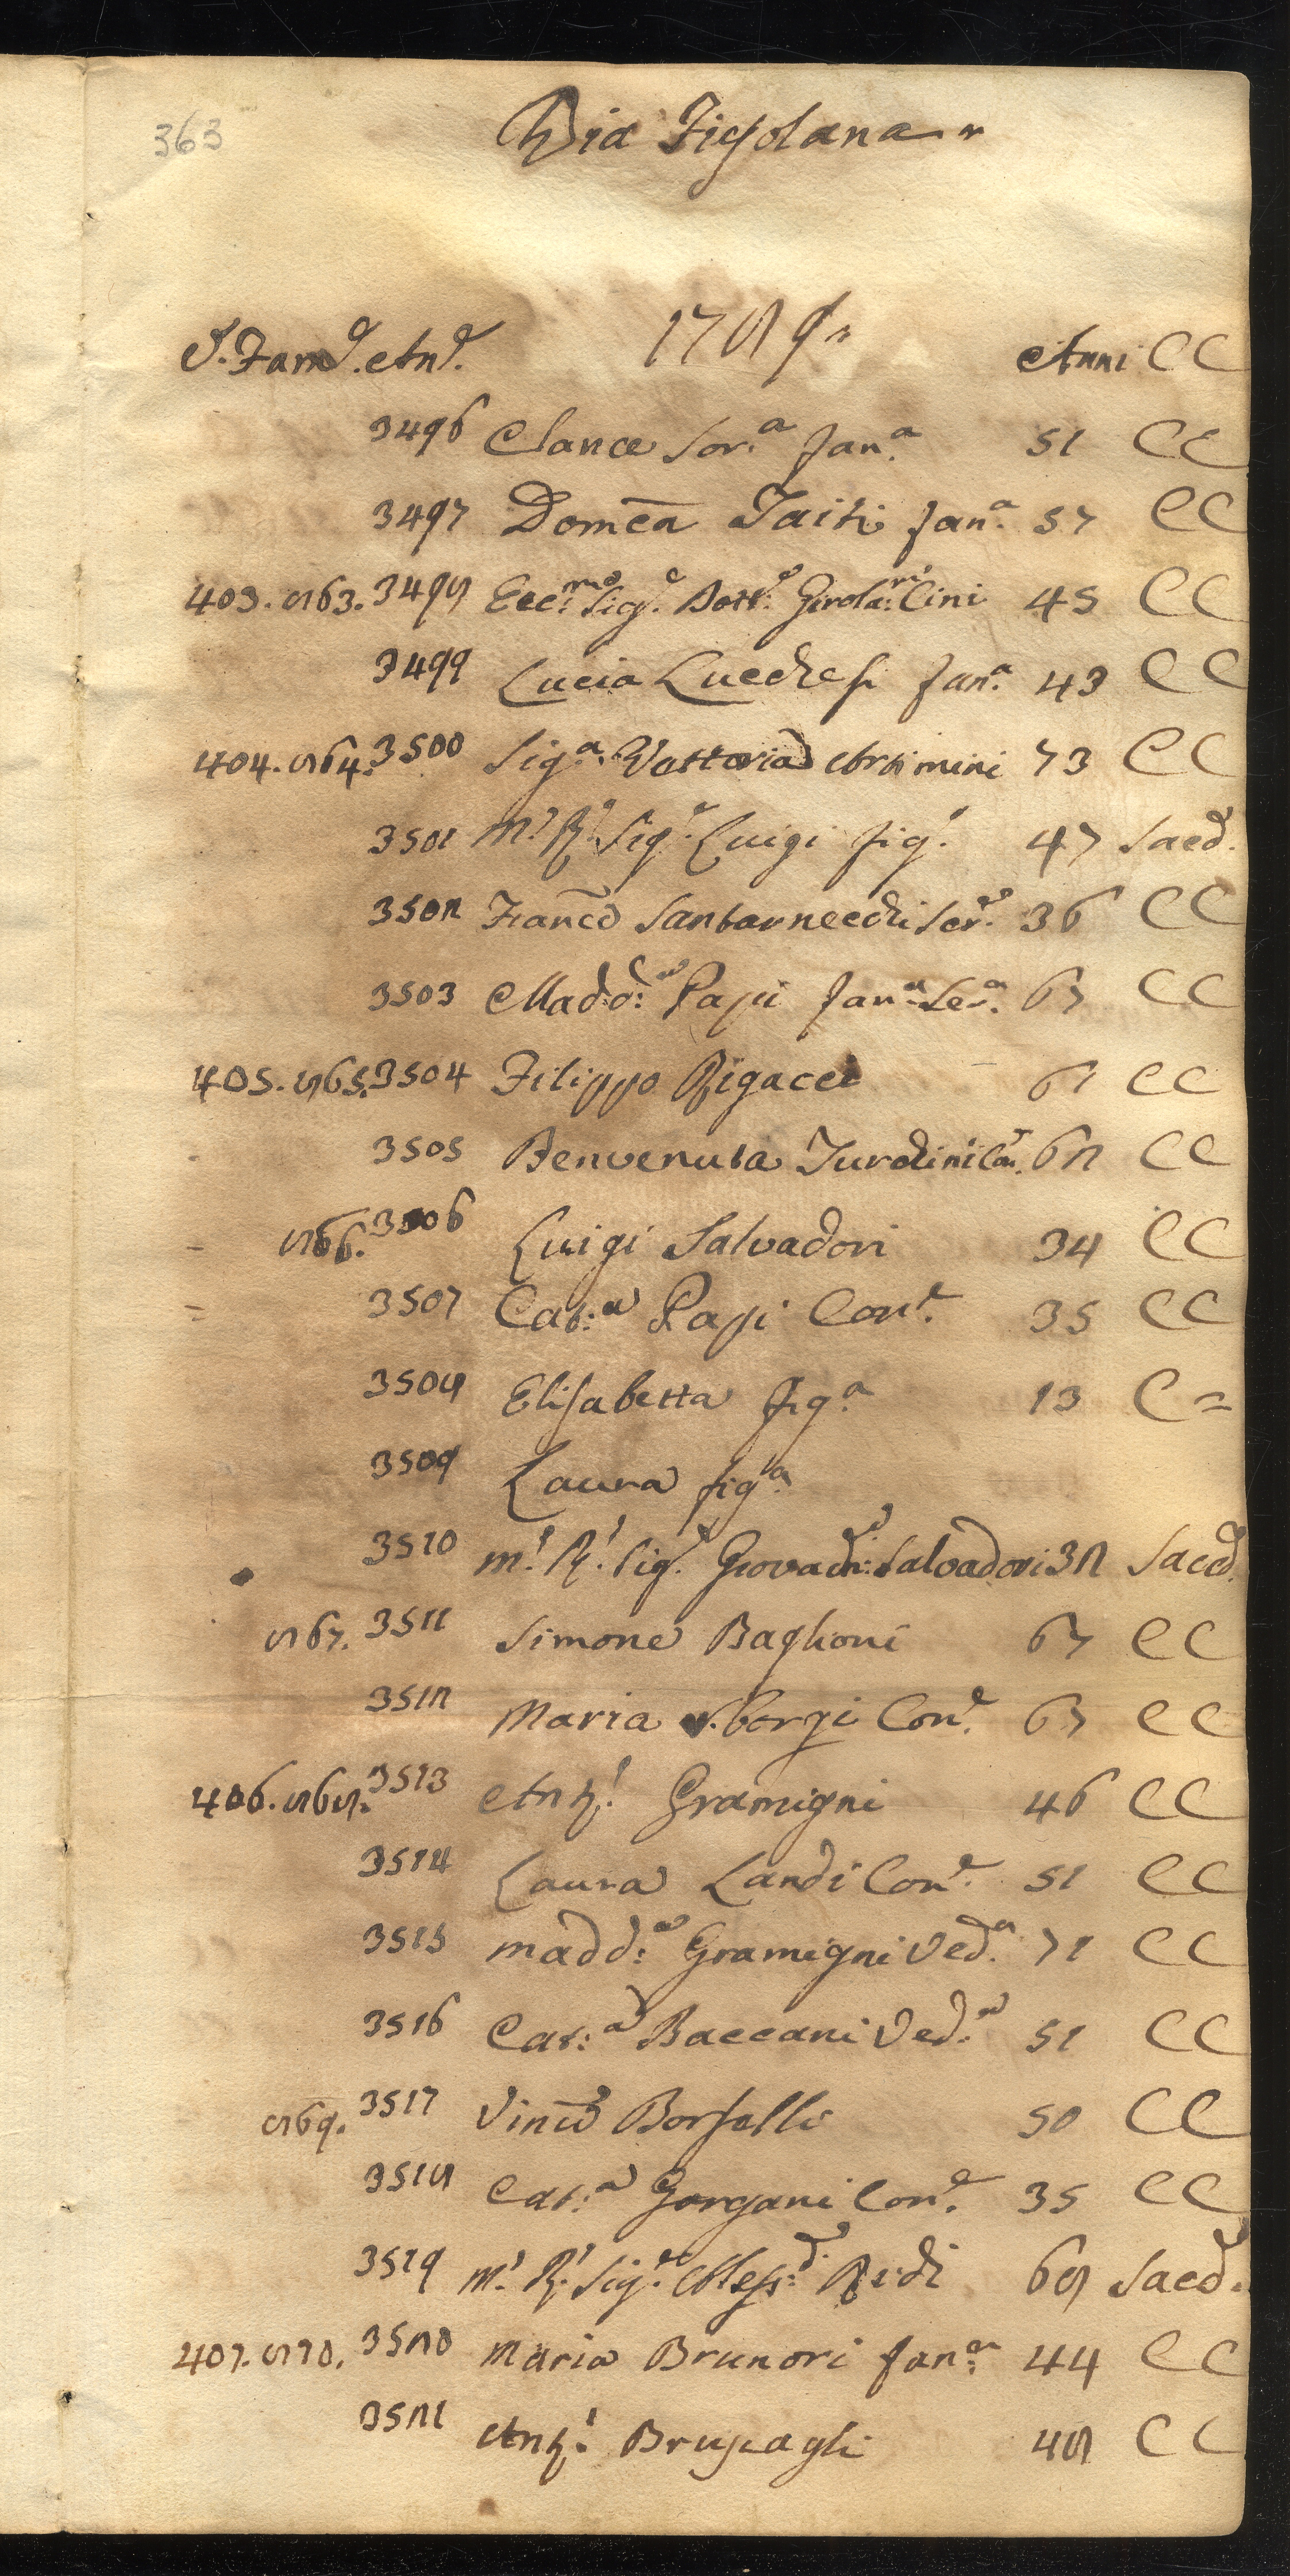 363
Via Fiesolana
1789
S. Fam.e An.e Anni CC
3496 Clarice Sor.a fan.a 51 CC
3497 Domca Taiti fan.a 57 CC
403. 863. 3498 Ecc.mo Sig.e Dott.e Girola.mo Cini 45 CC
3499 Lucia Lucchesi fan.a 43 CC
404. 864. 3500 Sig.a Vettoria Artimini 73 CC
3501 M.o R.o Sig.e Luigi fig.o 47 Sacd.
3502 Franco Santarnecchi Ser.e 36 CC
3503 Madd.a Papi fan.a Se.a 67 CC
405. 865. 3504 Filippo Rigacci 61 CC
3505 Benvenuta Turchini Con. 62 CC
866. 3506 Luigi Salvadori 34 CC
3507 Cat.a Papi Con.e 35 CC
3508 Elisabetta fig.a 13 C =
3509 Laura fig.a
3510 m.o R.o Sig.e Salvadori 32 Sacd.
867. 3511 Simone Baglioni 67 CC
3512 Maria Con.e 67 CC
406. 868. 3513 Ant.o Gramigni 46 CC
3514 Laura Landi Con.e 51 CC
3515 Madd.a Gramigni Ved.a 71 CC
3516 Cat.a Baccani Ved.a 51 CC
869. 3517 Vinco Borselli 50 CC
3518 Cat.a Gorgani Con.e 35 CC
3519 M.o R.o Sig.e Aless.o Redi 68 Sacd.
407. 870. 3520 Maria Brunori fan.a 44 CC
3521 Ant.o Bruscagli 48 CC